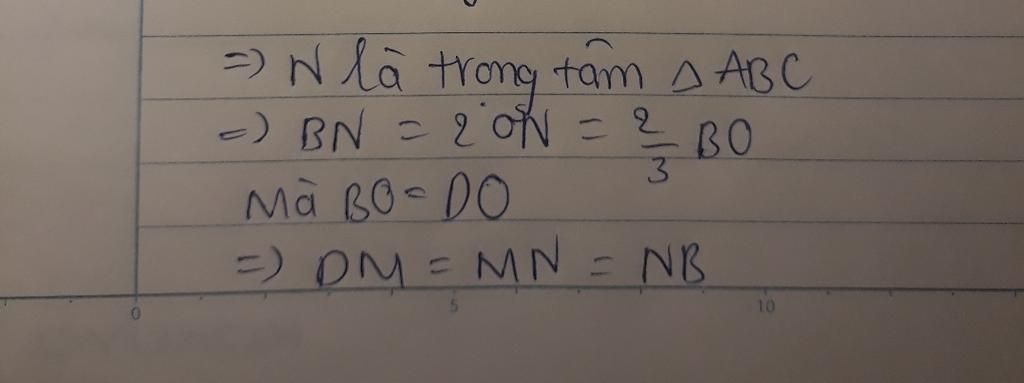 =) N là trọng tâm △ ABC
=) BN = 2 ON = 2/3 BO
Mà BO = DO
=) DM = MN = NB
0 5 10